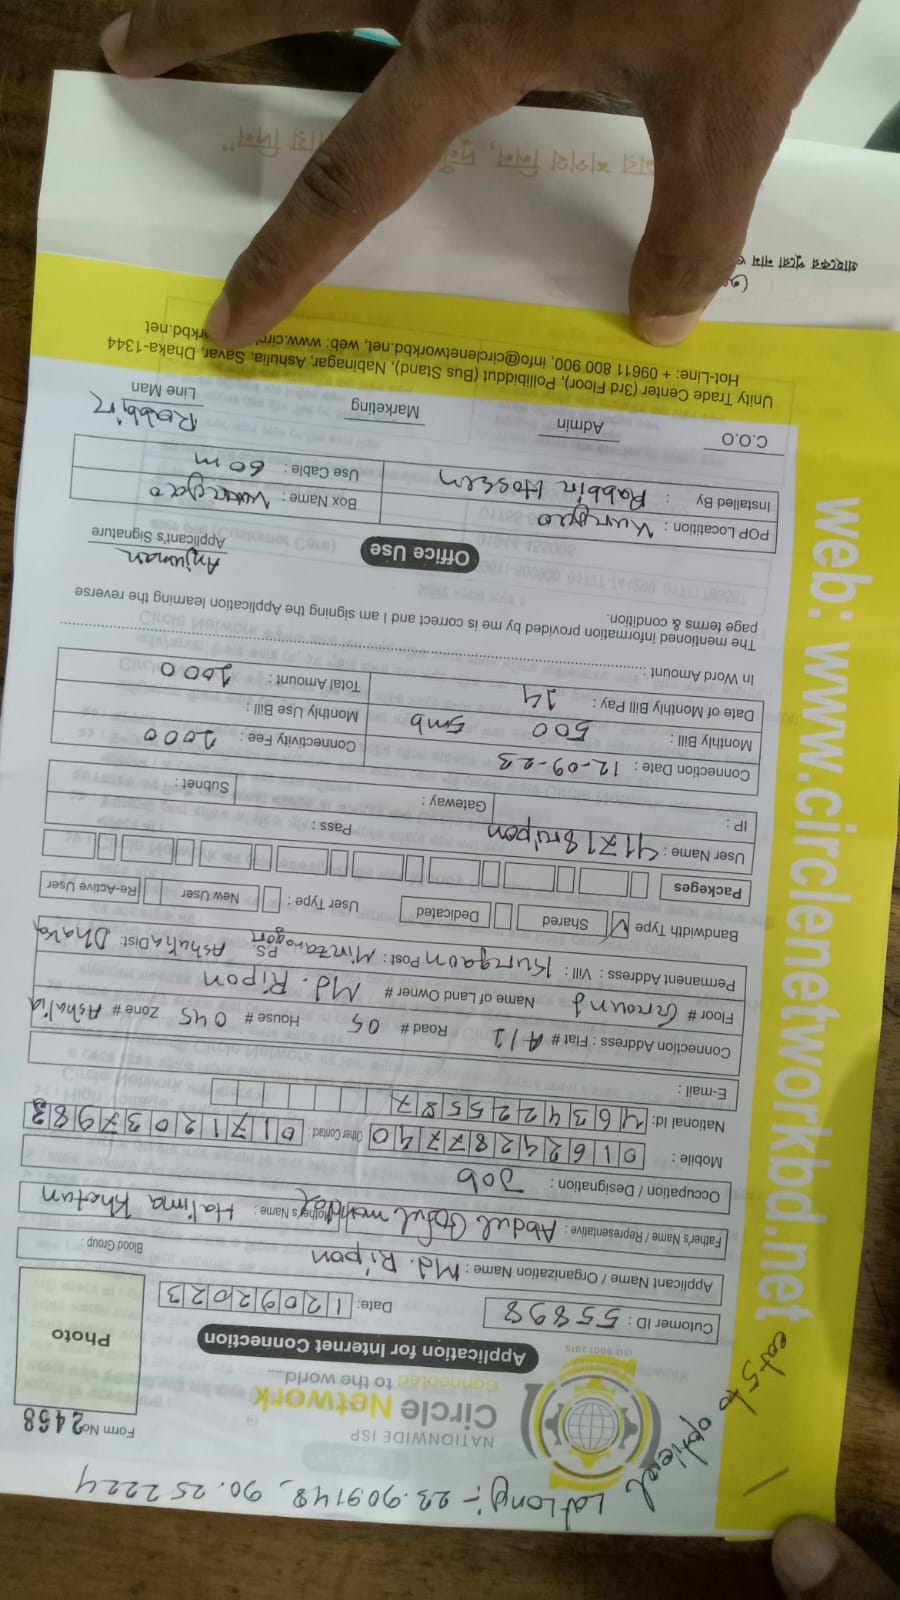 Lat Long :- 23.909148, 90.252224
cat5 to optical
NATIONWIDE ISP
Circle Network
Connected to the world....
ISO 9001:2015
Form No 2468
Photo
Application for Internet Connection
Cutomer ID : 55898 Date: 12092023
Applicant Name / Organization Name : Md. Ripon Blood Group :
Father's Name / Representative : Abdul Mother's Name : Halima Khatun
Occupation / Designation : Job
Mobile : 01624287740 Other Contact : 01712037983
National Id: 4634225587
E-mail :
Connection Address : Flat # A/1 Road # 05 House # 045 Zone # Ashulia
Floor # Ground Name of Land Owner # Md. Ripon
Permanent Address : Vill : Kurgaon Post : Mirzanagor P.S. Ashulia Dist: Dhaka
Bandwith Type ✓ Shared Dedicated User Type : New User Re-Active User
Packeges
User Name : 411718ripon Pass :
IP : Gateway : Subnet :
Connection Date : 12-09-23 Connectivity Fee : 1000
Monthly Bill : 500 5mb Monthly Use Bill :
Date of Monthly Bill Pay : 14 Total Amount : 1000
In Word Amount :
The mentioned information provided by me is correct and I am signing the Application learning the reverse
page terms & condition.
Anjuman
Applicant's Signature
Office Use
POP Locatition : Kurgao Box Name :
Installed By : Rabbin Hossen Use Cable : 60 m
C.O.O Admin Marketing Rabbin Line Man
Unity Trade Center (3rd Floor), Pollibiddut (Bus Stand), Nabinagar, Ashulia, Savar, Dhaka-1344
Hot-Line: + 09611 800 900, info@circlenetworkbd.net, web: www.circ rkbd.net
web: www.circlenetworkbd.net
গ্রাহকের পুরো নাম